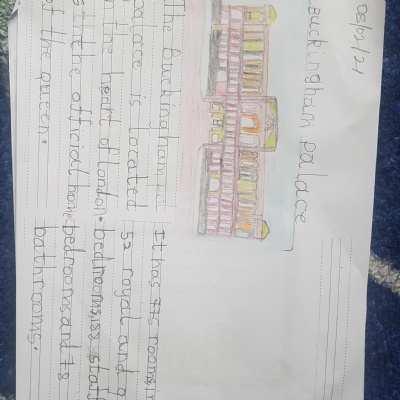 Buckingham palace
The Buckingham
palace is located
in the heart of London.
the official home
of the queen.
It has 775 rooms,
52 royal and
bedrooms, 188 staff
bedrooms and 78
bathrooms.